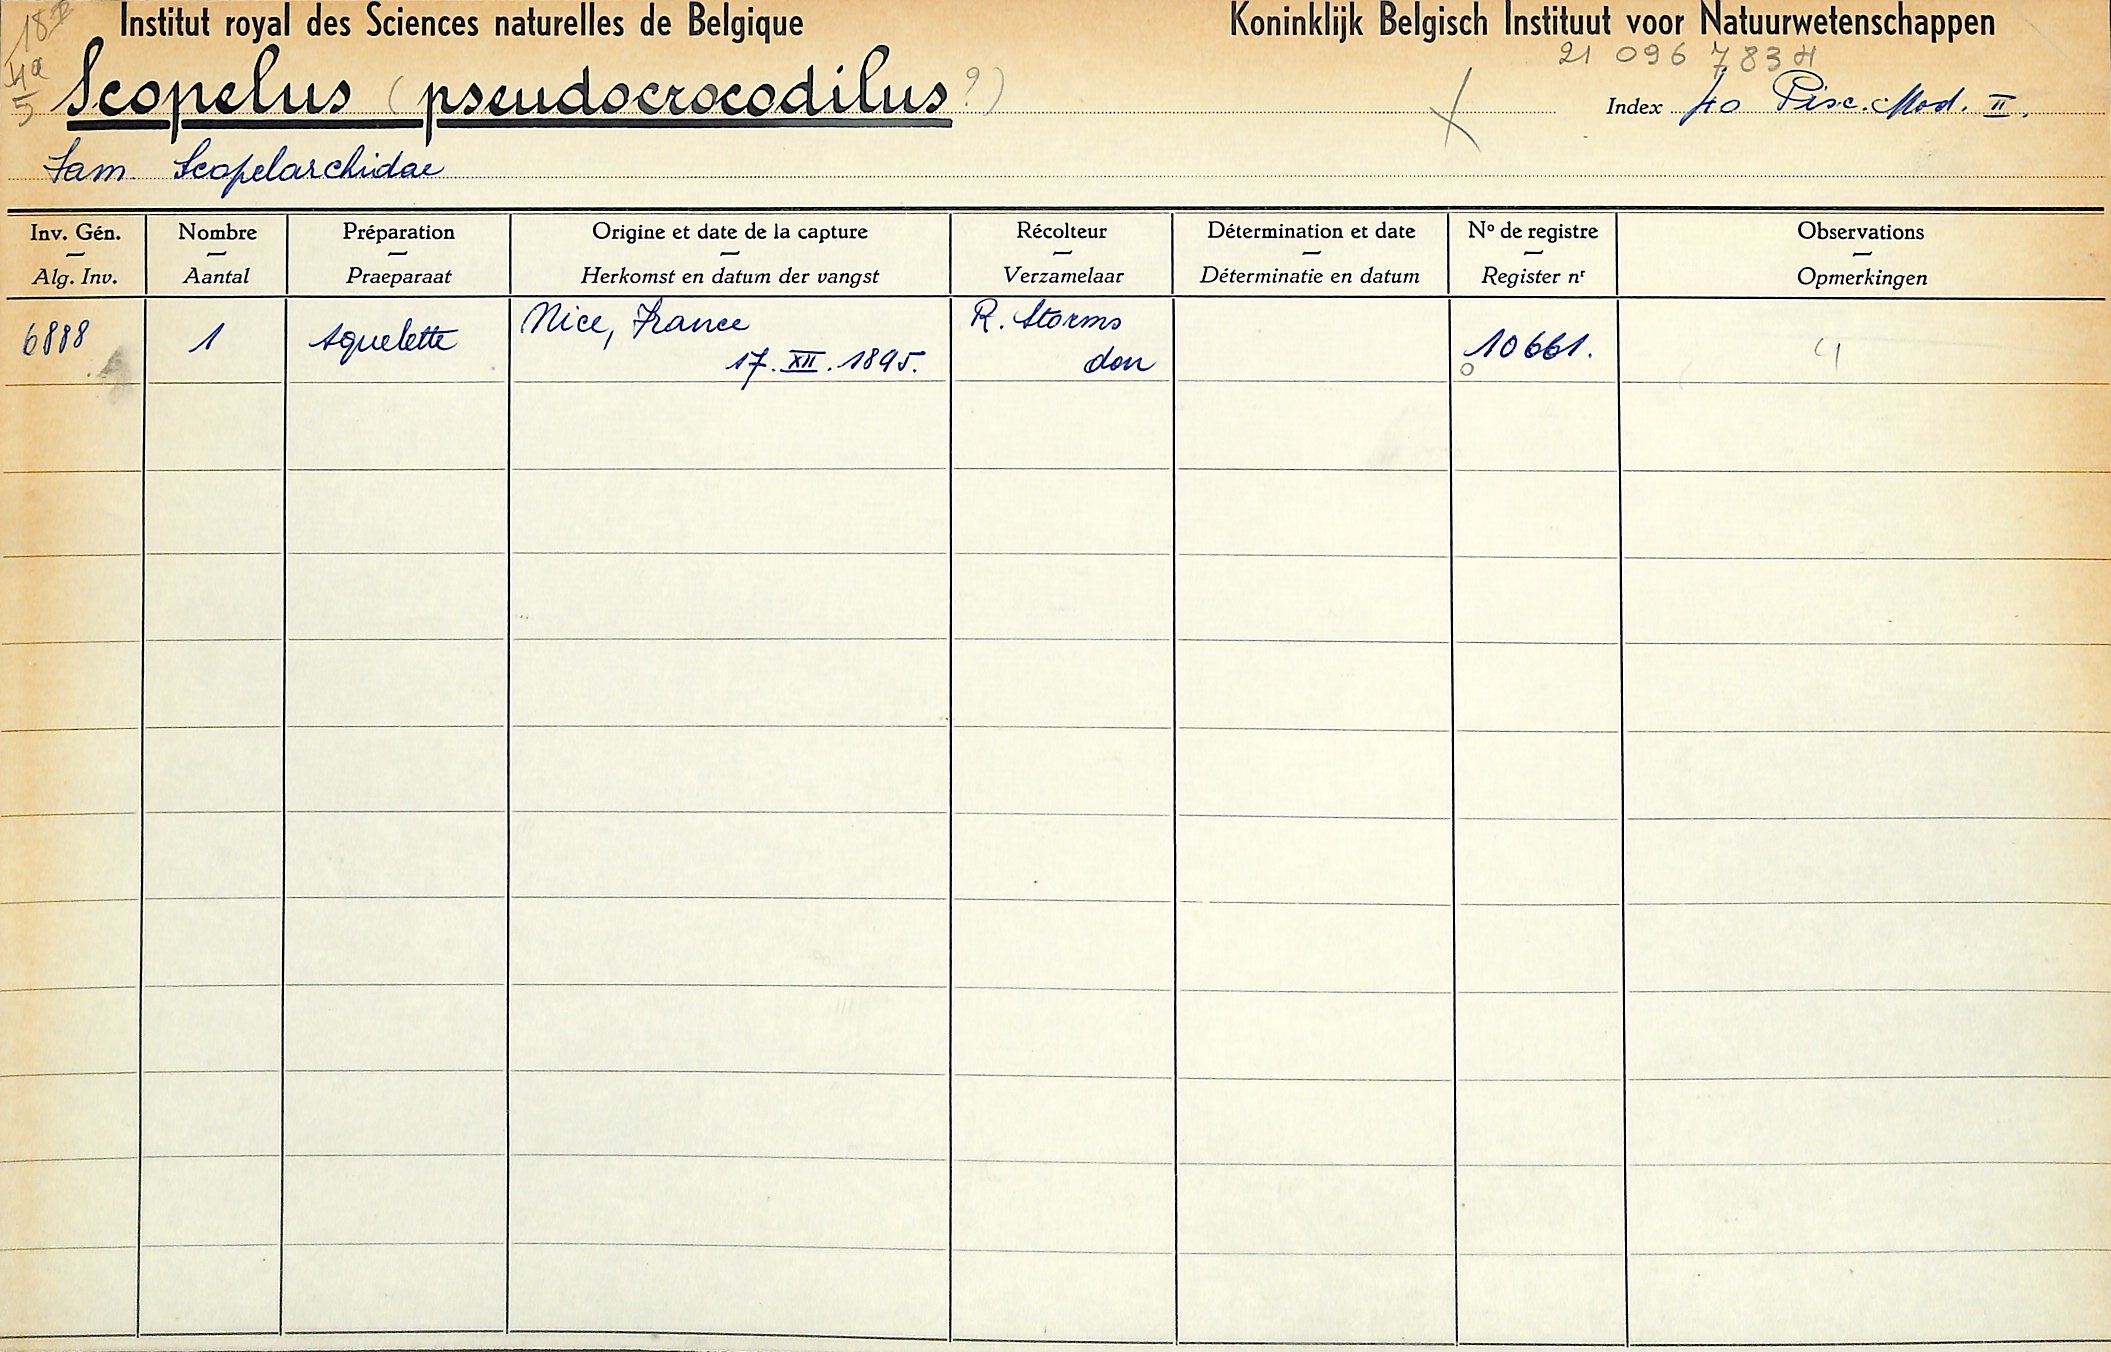 Institut royal des Sciences naturelles de Belgique
Koninklijk Belgisch Instituut voor Natuurwetenschappen
21 096 7834
Scopelus (pseudocrocodilus?)
Index 40 Pisc. Mod. II.
Fam. Scopelarchidae
Inv. Gén. Nombre Préparation Origine et date de la capture Récolteur Détermination et date Nº de registre Observations
Alg. Inv. Aantal Praeparaat Herkomst en datum der vangst Verzamelaar Déterminatie en datum Register nʳ Opmerkingen
6888 1 squelette Nice, France R. Storms 10661.
17. XII. 1895. don